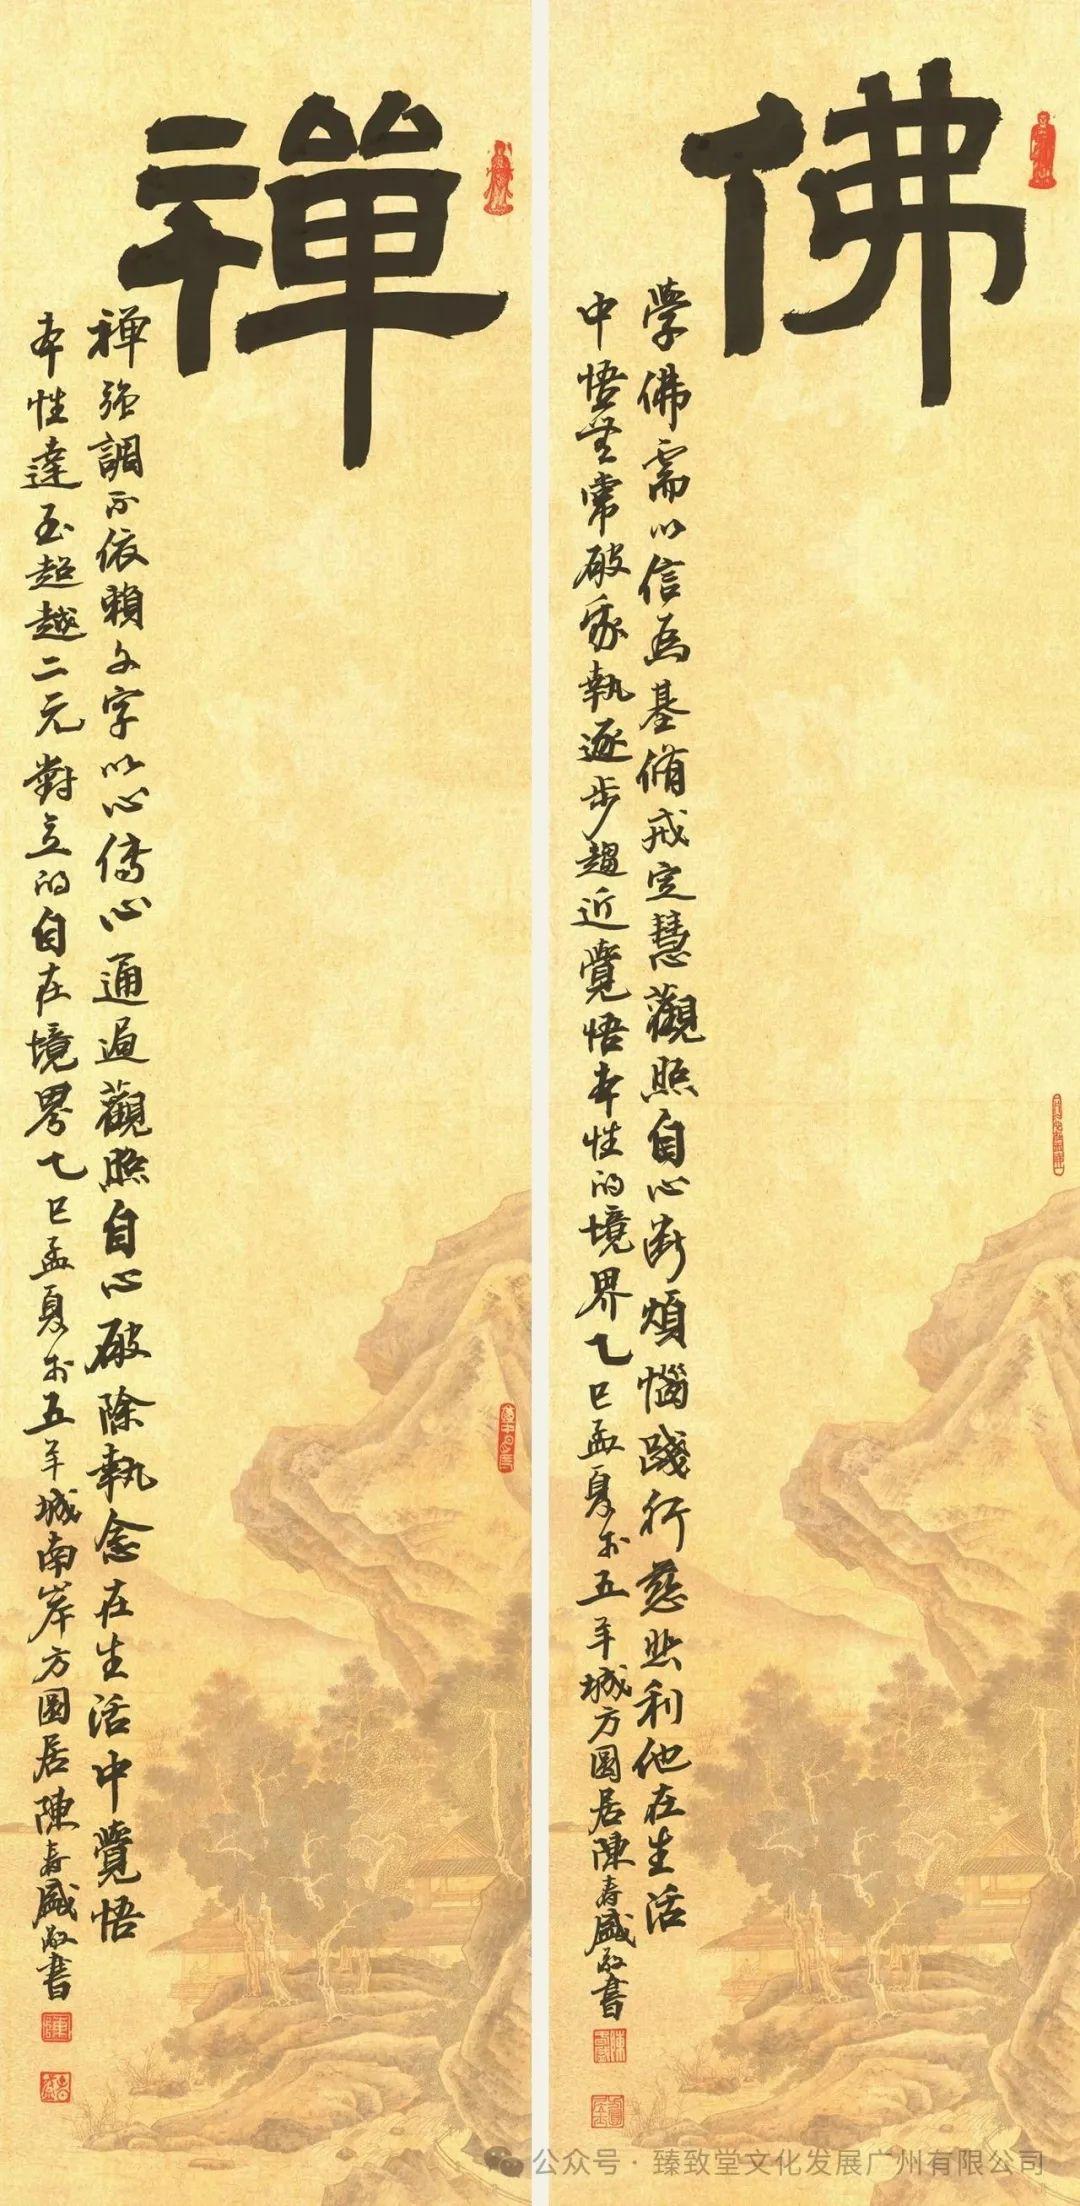 佛
學佛需以信為基脩戒定慧觀照自心断煩惱踐行慈悲利他在生活
中悟無常破我執逐步趨近覺悟本性的境界乙巳孟夏於五羊城方圓居陳壽盛敬書
禪
禅强調不依賴文字以心傳心通過觀照自心破除執念在生活中覺悟
本性達至超越二元對立的自在境界乙巳孟夏於五羊城南岸方圓居陳壽盛敬書
公众号·臻致堂文化发展广州有限公司